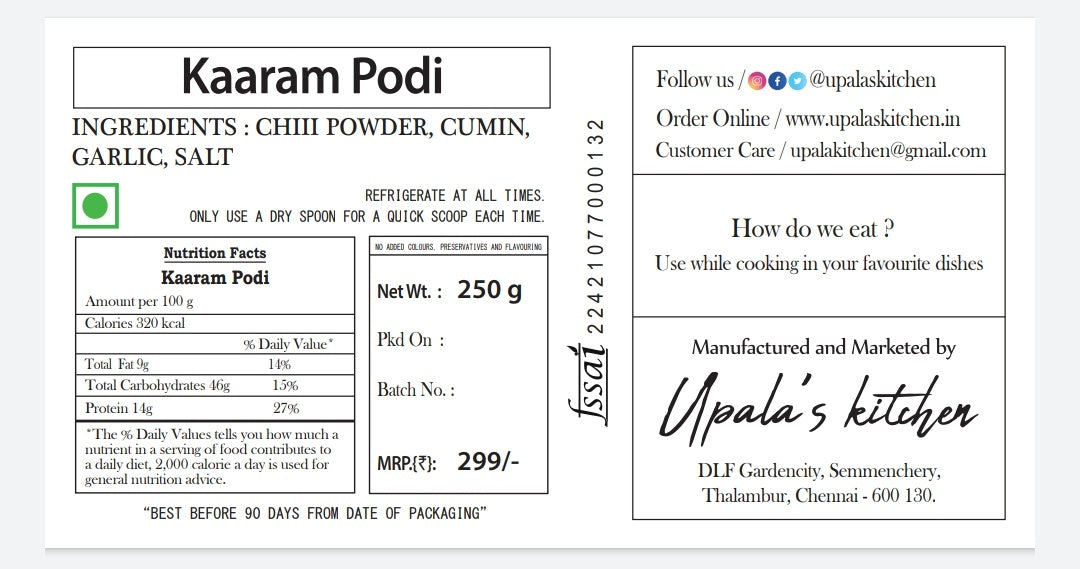 Kaaram Podi
INGREDIENTS : CHIII POWDER, CUMIN,
GARLIC, SALT
REFRIGERATE AT ALL TIMES.
ONLY USE A DRY SPOON FOR A QUICK SCOOP EACH TIME.
Nutrition Facts
Kaaram Podi
Amount per 100 g
Calories 320 kcal
% Daily Value*
Total Fat 9g 14%
Total Carbohydrates 46g 15%
Protein 14g 27%
*The % Daily Values tells you how much a
nutrient in a serving of food contributes to
a daily diet, 2,000 calorie a day is used for
general nutrition advice.
NO ADDED COLOURS, PRESERVATIVES AND FLAVOURING
Net Wt. : 250 g
Pkd On :
Batch No. :
MRP.{₹}: 299/-
"BEST BEFORE 90 DAYS FROM DATE OF PACKAGING"
fssai 22421077000132
Follow us / @upalaskitchen
Order Online / www.upalaskitchen.in
Customer Care / upalakitchen@gmail.com
How do we eat ?
Use while cooking in your favourite dishes
Manufactured and Marketed by
Upala's kitchen
DLF Gardencity, Semmenchery,
Thalambur, Chennai - 600 130.